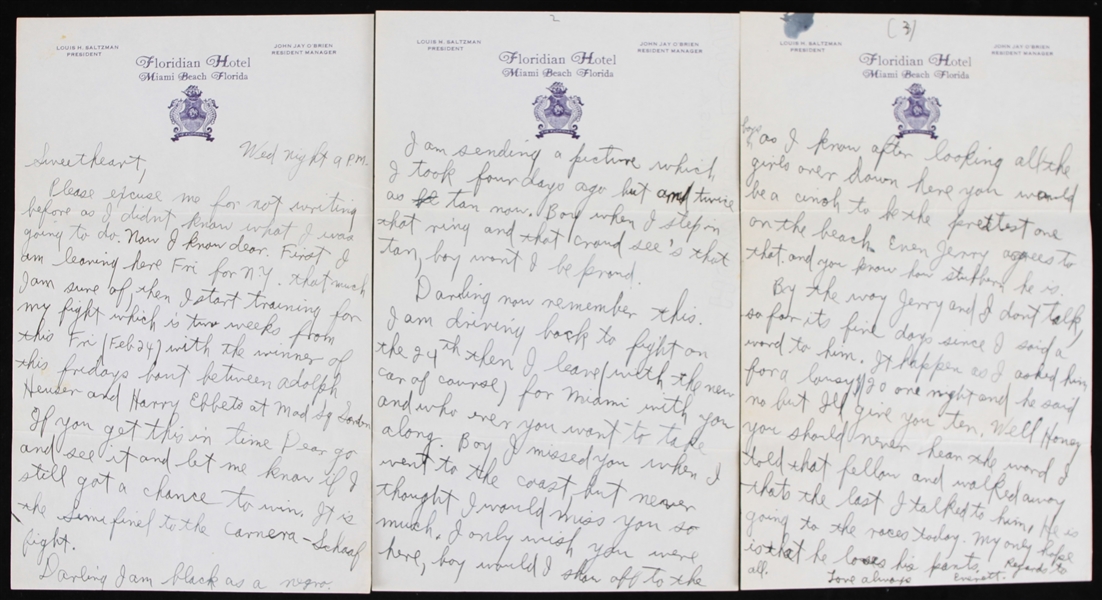 LOUIS H. SALTZMAN
PRESIDENT
JOHN JAY O'BRIEN
RESIDENT MANAGER
Floridian Hotel
Miami Beach Florida
Wed night 9 P.M.
Sweetheart,
Please excuse me for not writing
before as I didn't know what I was
going to do. Now I know dear. First I
am leaving here Fri for N.Y. that much
I am sure of, then I start training for
my fight which is two weeks from
this Fri (Feb 24) with the winner of
this fridays bout between Adolph
Heuser and Harry Ebbets at Mad Sq Garden
If you get this in time Dear go
and see it and let me know if I
still got a chance to win. It is
the semifinal to the Carnera-Schaaf
fight.
Darling I am black as a negro.
2
LOUIS H. SALTZMAN
PRESIDENT
JOHN JAY O'BRIEN
RESIDENT MANAGER
Floridian Hotel
Miami Beach Florida
I am sending a picture which
I took four days ago but am twice
as tan now. Boy when I step in
that ring and that crowd see's that
tan, boy wont I be proud.
Darling now remember this.
I am driving back to fight on
the 24th then I leave (with the new
car of course) for Miami with you
and who ever you want to take
along. Boy I missed you when I
went to the coast but never
thought I would miss you so
much. I only wish you were
here, boy would I show off to the
(3)
LOUIS H. SALTZMAN
PRESIDENT
JOHN JAY O'BRIEN
RESIDENT MANAGER
Floridian Hotel
Miami Beach Florida
boys as I know after looking all the
girls over down here you would
be a cinch to be the prettest one
on the beach. Even Jerry agrees to
that. and you know how stubborn he is.
By the way Jerry and I dont talk,
so far its five days since I said a
word to him. It happen as I asked him
for a lousy $20 one night and he said
no but Ill give you ten. Well Honey
you should never hear the word I
told that fellow and walked away
thats the last I talked to him. He is
going to the races today. My only hope
is that he loses his pants. Regards to
all.
Love always
Everett.